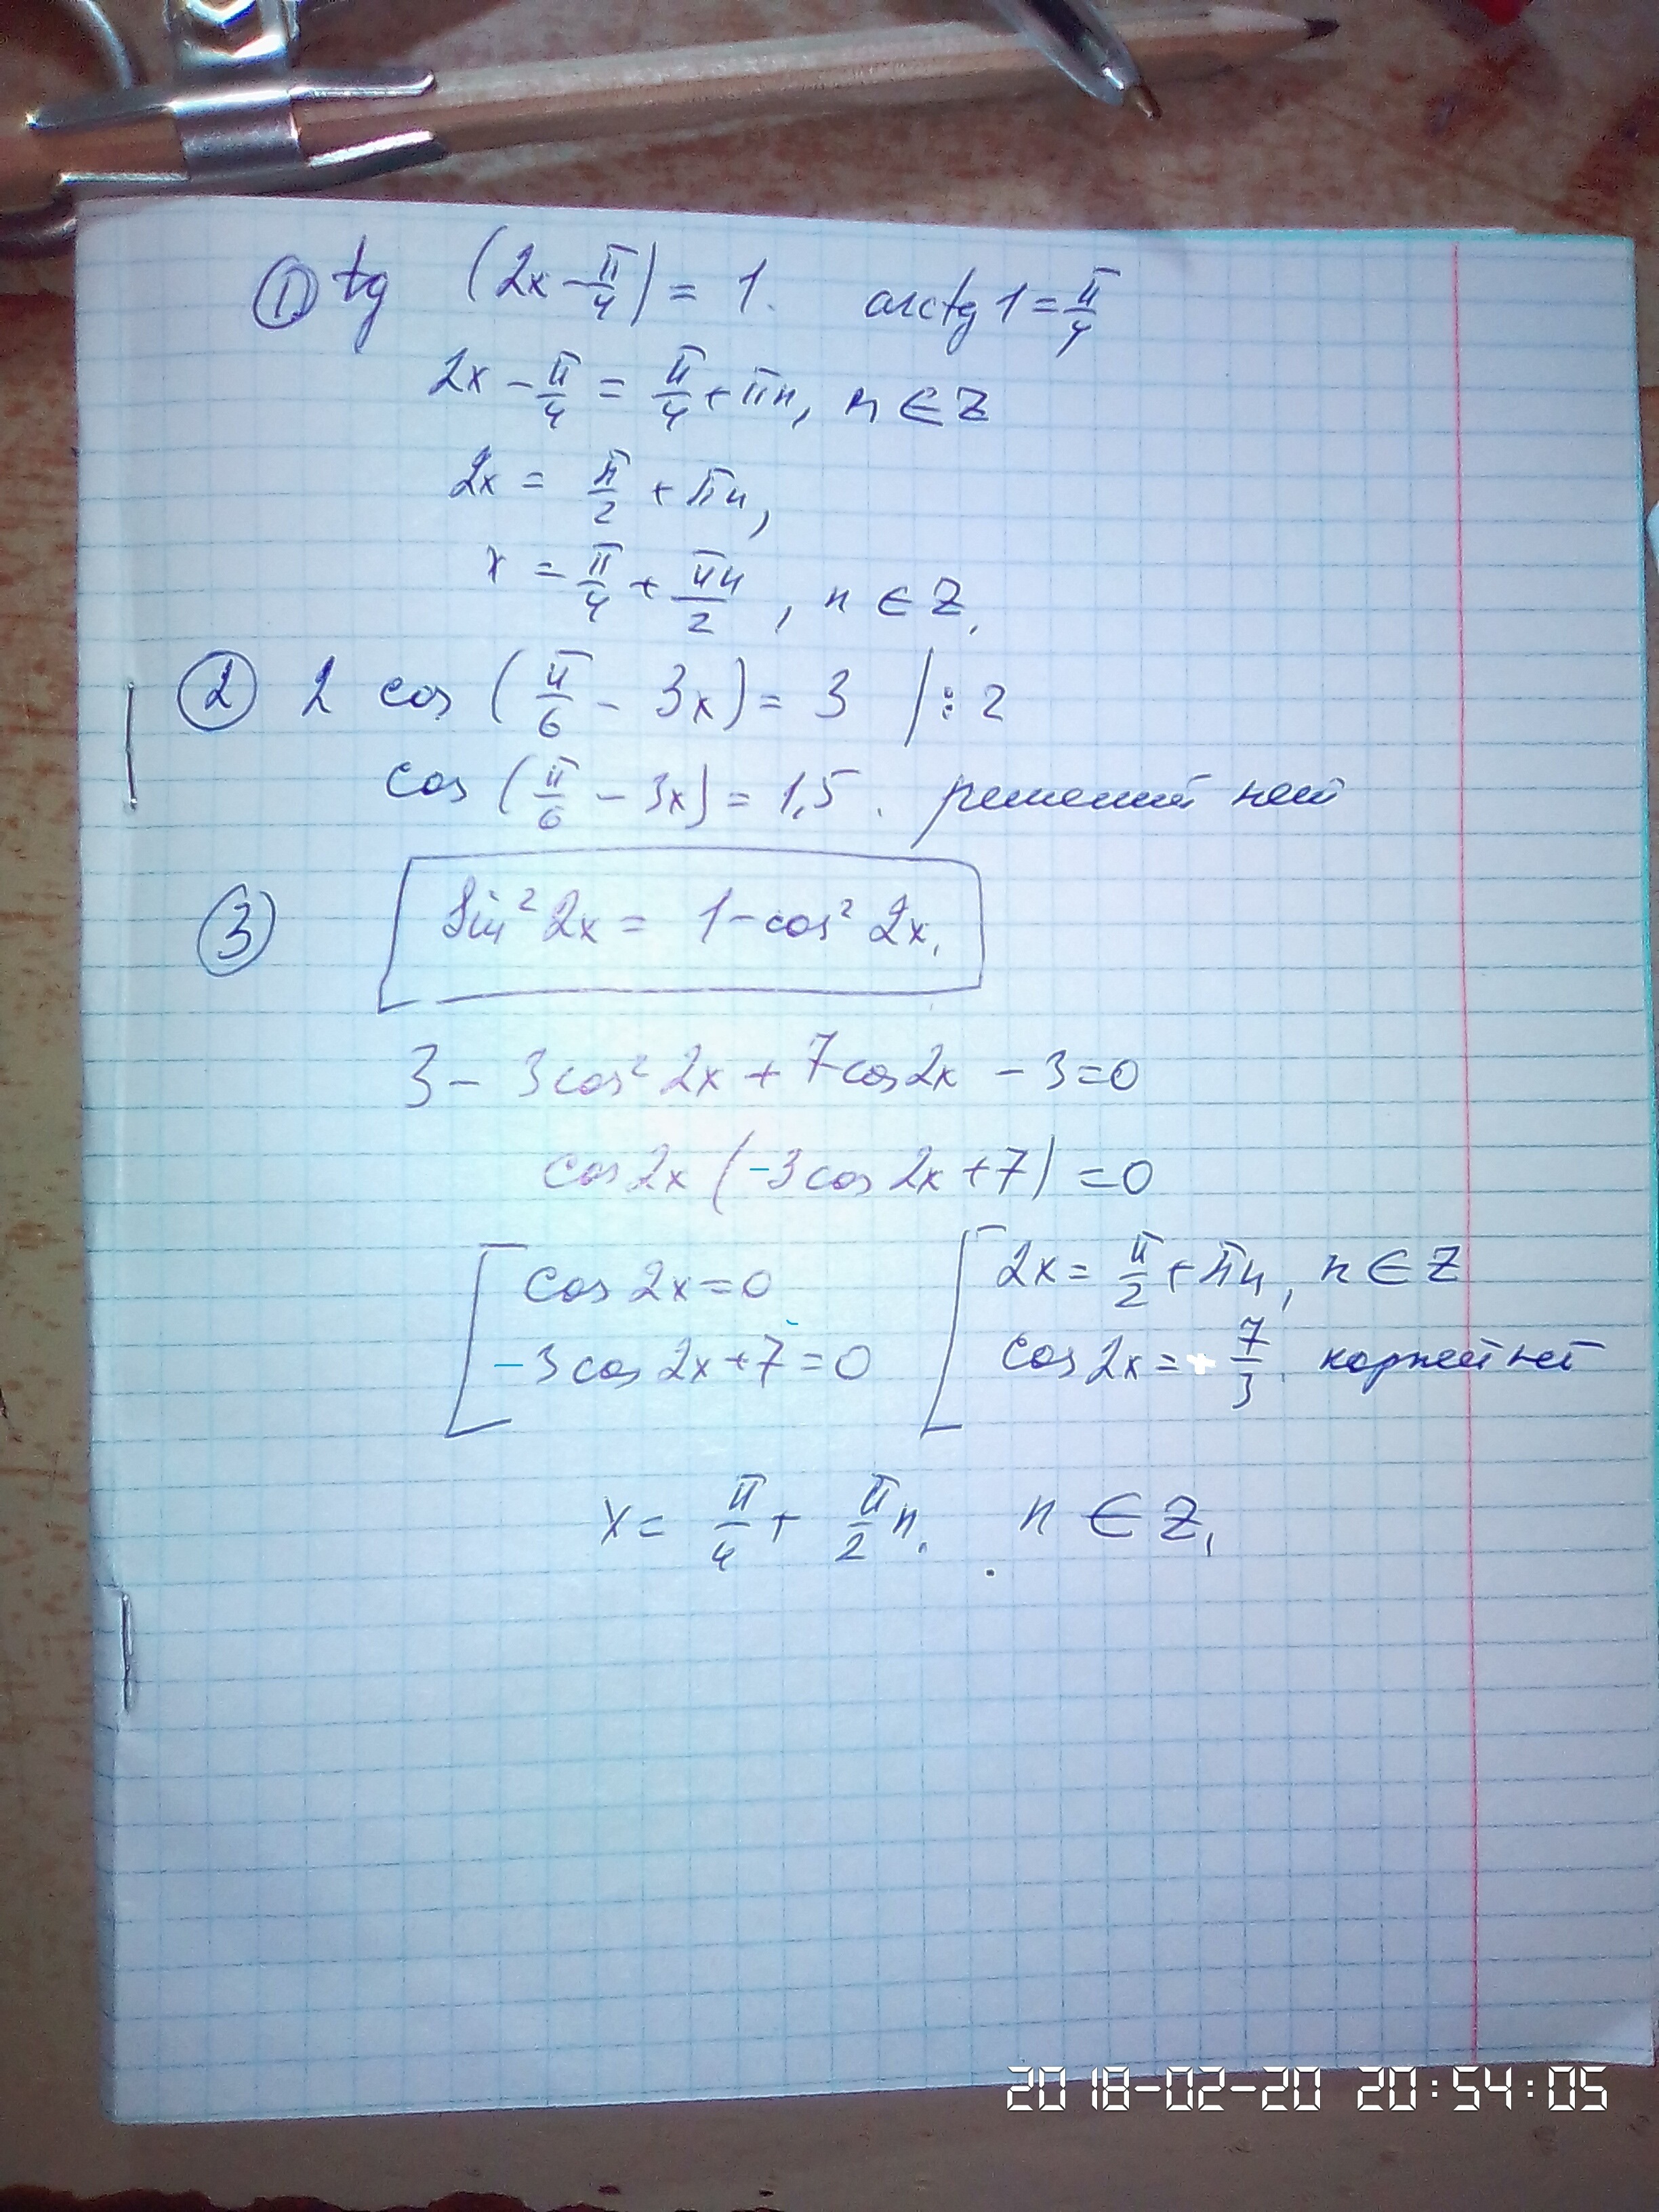 ① tg (2x - π/4) = 1. arctg 1 = π/4
2x - π/4 = π/4 + πn, n ∈ Z
2x = π/2 + πn,
x = π/4 + πn/2, n ∈ Z.
② 2 cos (π/6 - 3x) = 3 | : 2
cos (π/6 - 3x) = 1,5. решений нет
③ sin² 2x = 1 - cos² 2x.
3 - 3cos² 2x + 7cos2x - 3 = 0
cos2x (-3cos 2x + 7) = 0
cos 2x = 0 2x = π/2 + πn, n ∈ Z
-3cos 2x + 7 = 0 cos 2x = + 7/3. корней нет
x = π/4 + π/2 n. n ∈ Z.
2018-02-20 20:54:05